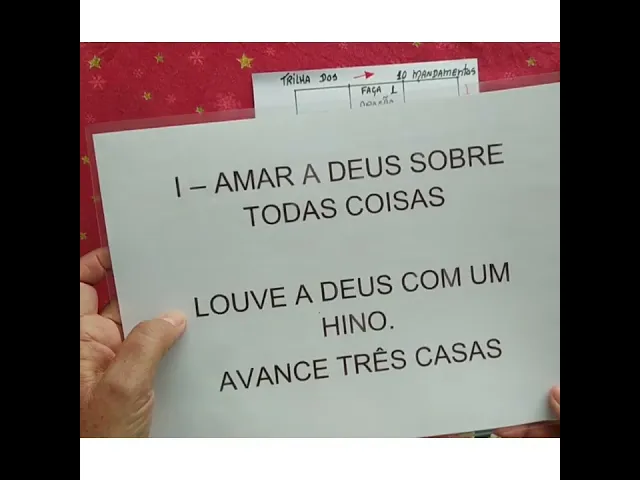 TRILHA DOS → 10 MANDAMENTOS
FAÇA 1
I – AMAR A DEUS SOBRE
TODAS COISAS
LOUVE A DEUS COM UM
HINO.
AVANCE TRÊS CASAS